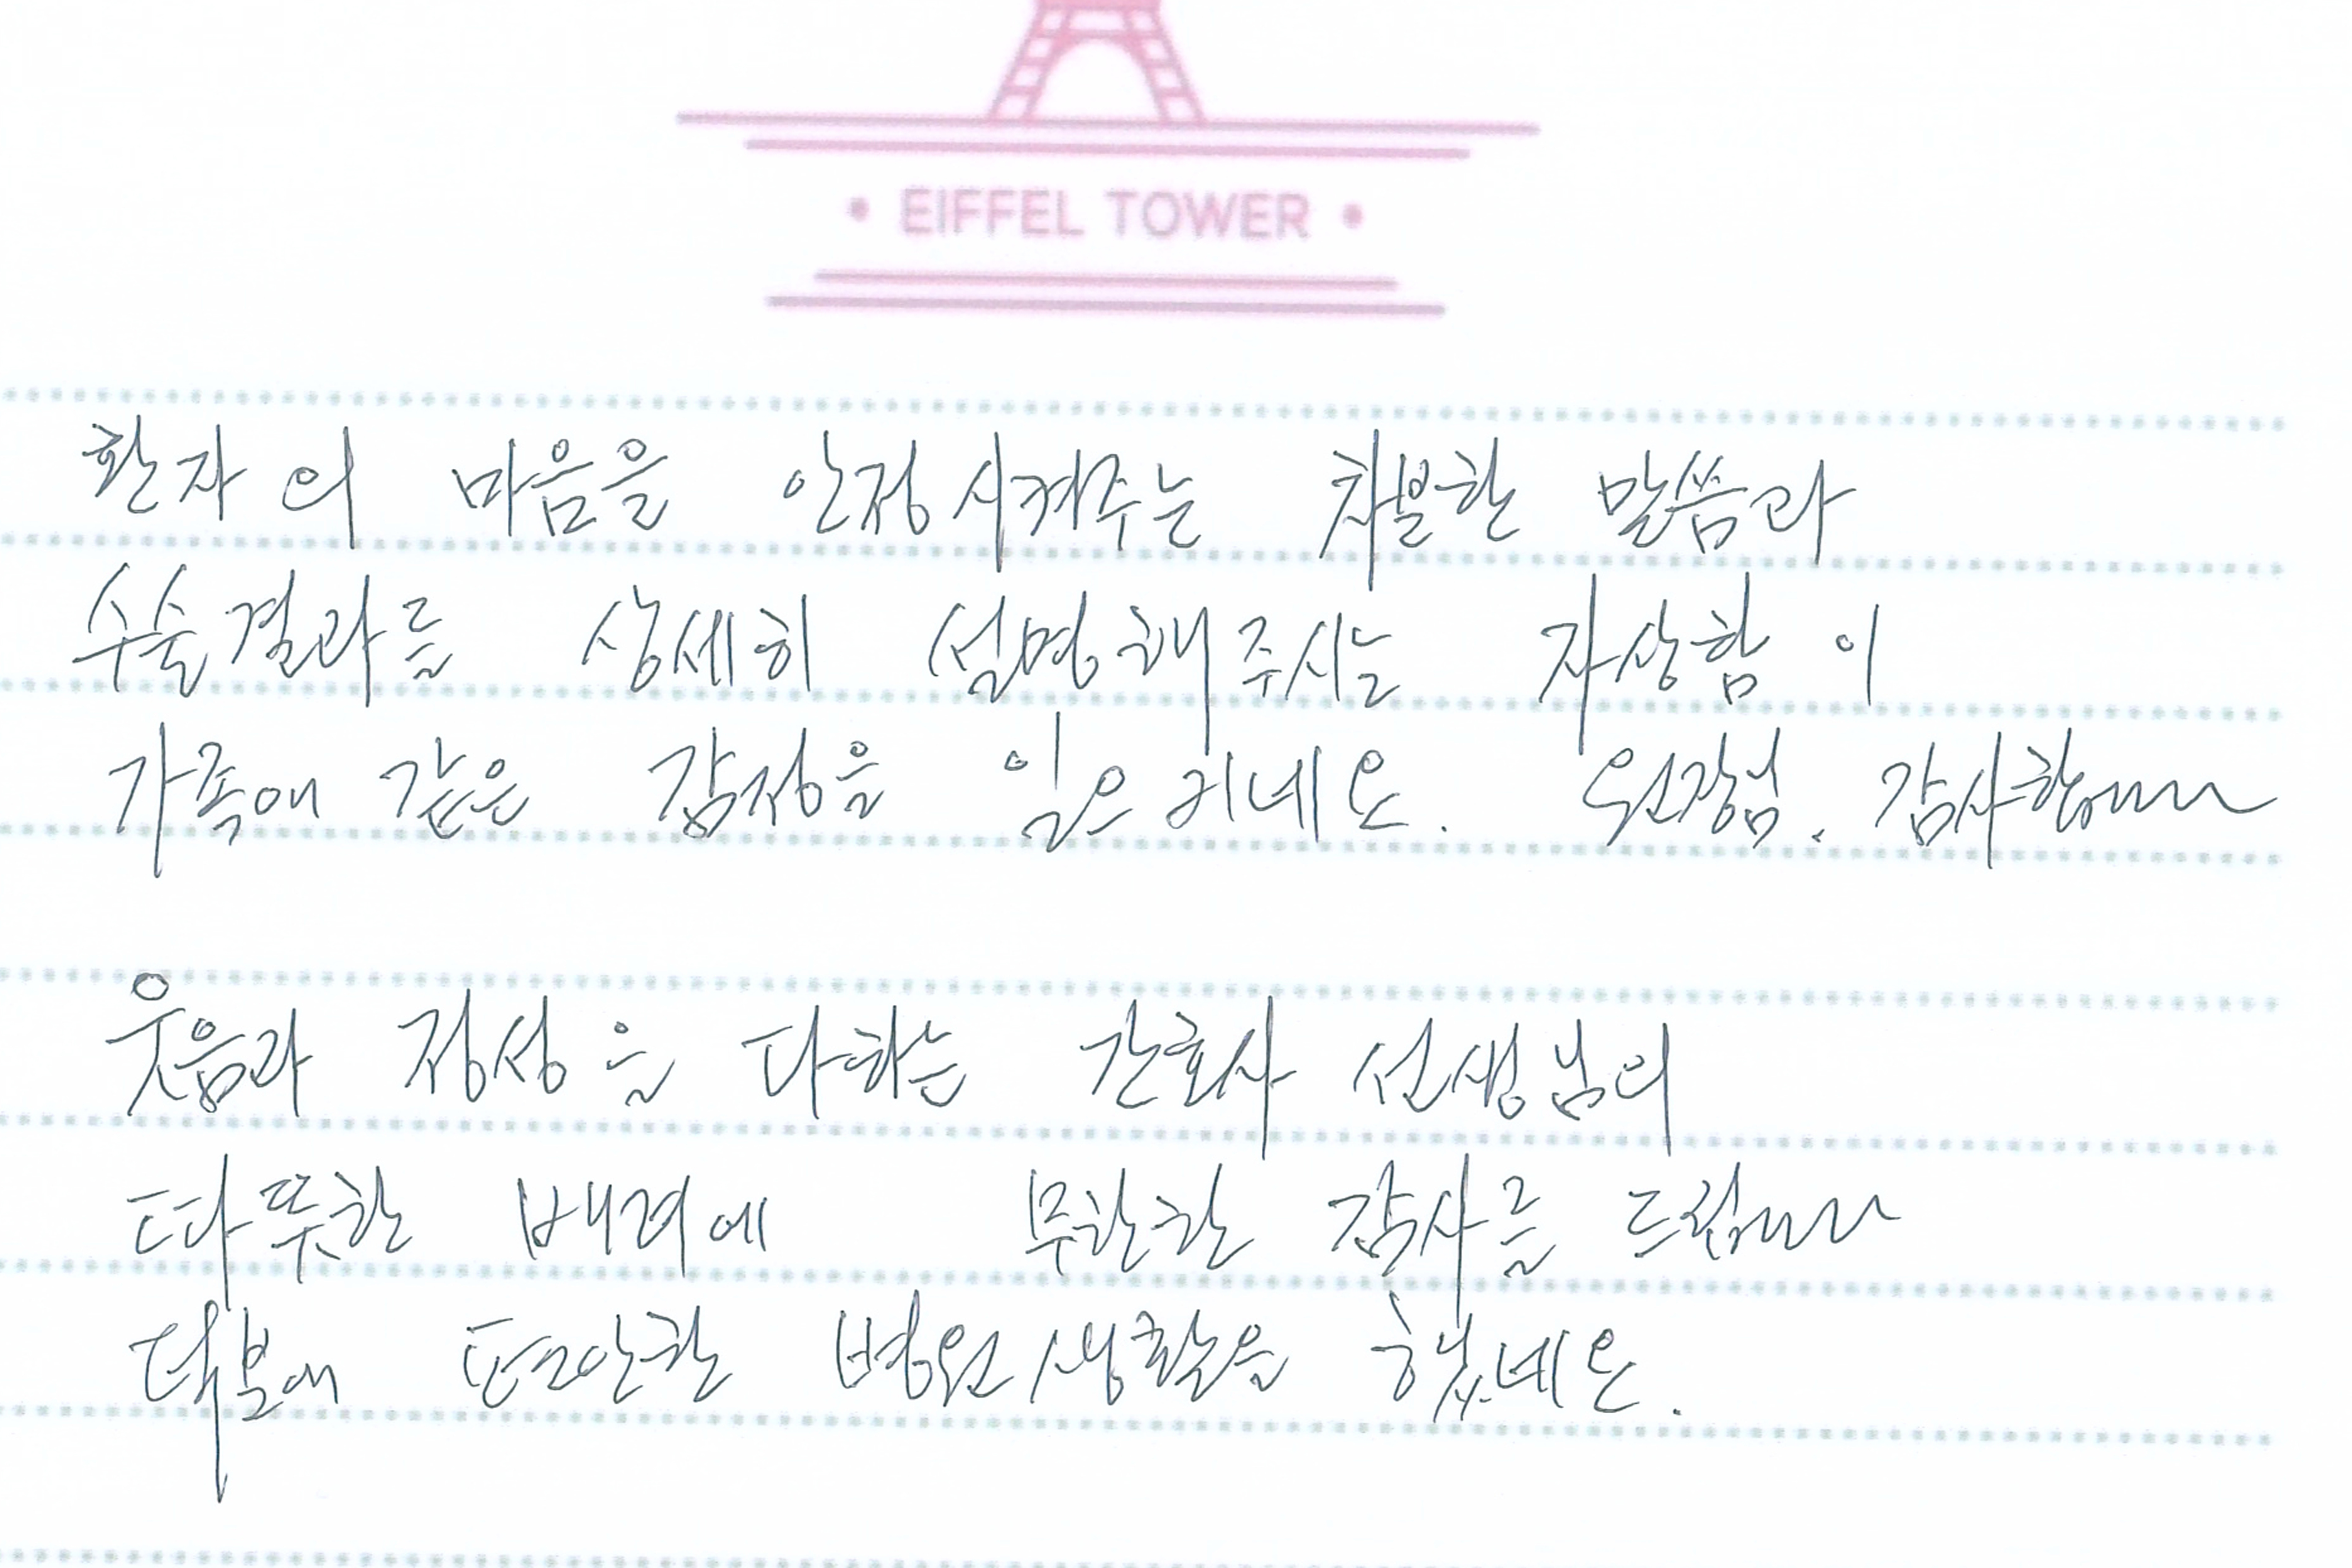 • EIFFEL TOWER •
환자의 마음을 안정시켜주는 차분한 말씀과
수술결과를 상세히 설명해주시는 자상함이
가족애 같은 감정을 일으키네요. 원장님. 감사합
웃음과 정성을 다하는 간호사 선생님의
따뜻한 배려에 무한한 감사를 드립
더불어 편안한 병원생활을 했네요.